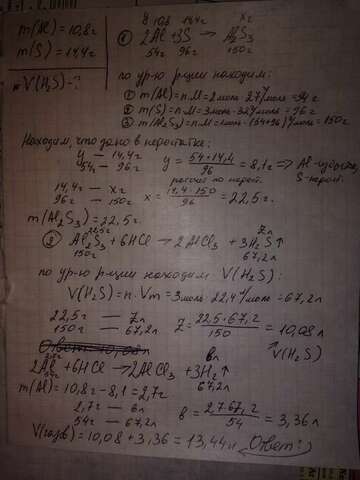 m(Al)=10,8г
m(S)=14,4г
V(H2S)-?
10,8 14,4г xг
① 2Al+3S → Al2S3
54г 96г 150г
по ур-ю р-ции находим:
① m(Al)=n.M=2моль.27г/моль=54г
② m(S)=n.M=3моль.32г/моль=96г
③ m(Al2S3)=n.M=1моль.(54+96)г/моль=150г
Находим, что дано в недостатке:
y — 14,4г
54г — 96г
y = 54.14,4 / 96 = 8,1г ⇒ Al-избыток, S-недост.
расчёт по недост.
14,4г — xг
96г — 150г
x = 14,4.150 / 96 = 22,5г.
m(Al2S3)=22,5г.
22,5г Zл
② Al2S3+6HCl → 2AlCl3 +3H2S↑
150г 67,2л
по ур-ю р-ции находим V(H2S):
V(H2S)=n.Vm=3моль.22,4л/моль=67,2л
22,5г — Zл
150г — 67,2л
Z = 22,5.67,2 / 150 = 10,08л
V(H2S)
Ответ: 10,08л
2,7г вл
2Al+6HCl → 2AlCl3 +3H2↑
54г 67,2л
m(Al)=10,8г-8,1=2,7г
2,7г — вл
54г — 67,2л
в = 2,7.67,2 / 54 = 3,36л
V(газов)=10,08+3,36=13,44л Ответ